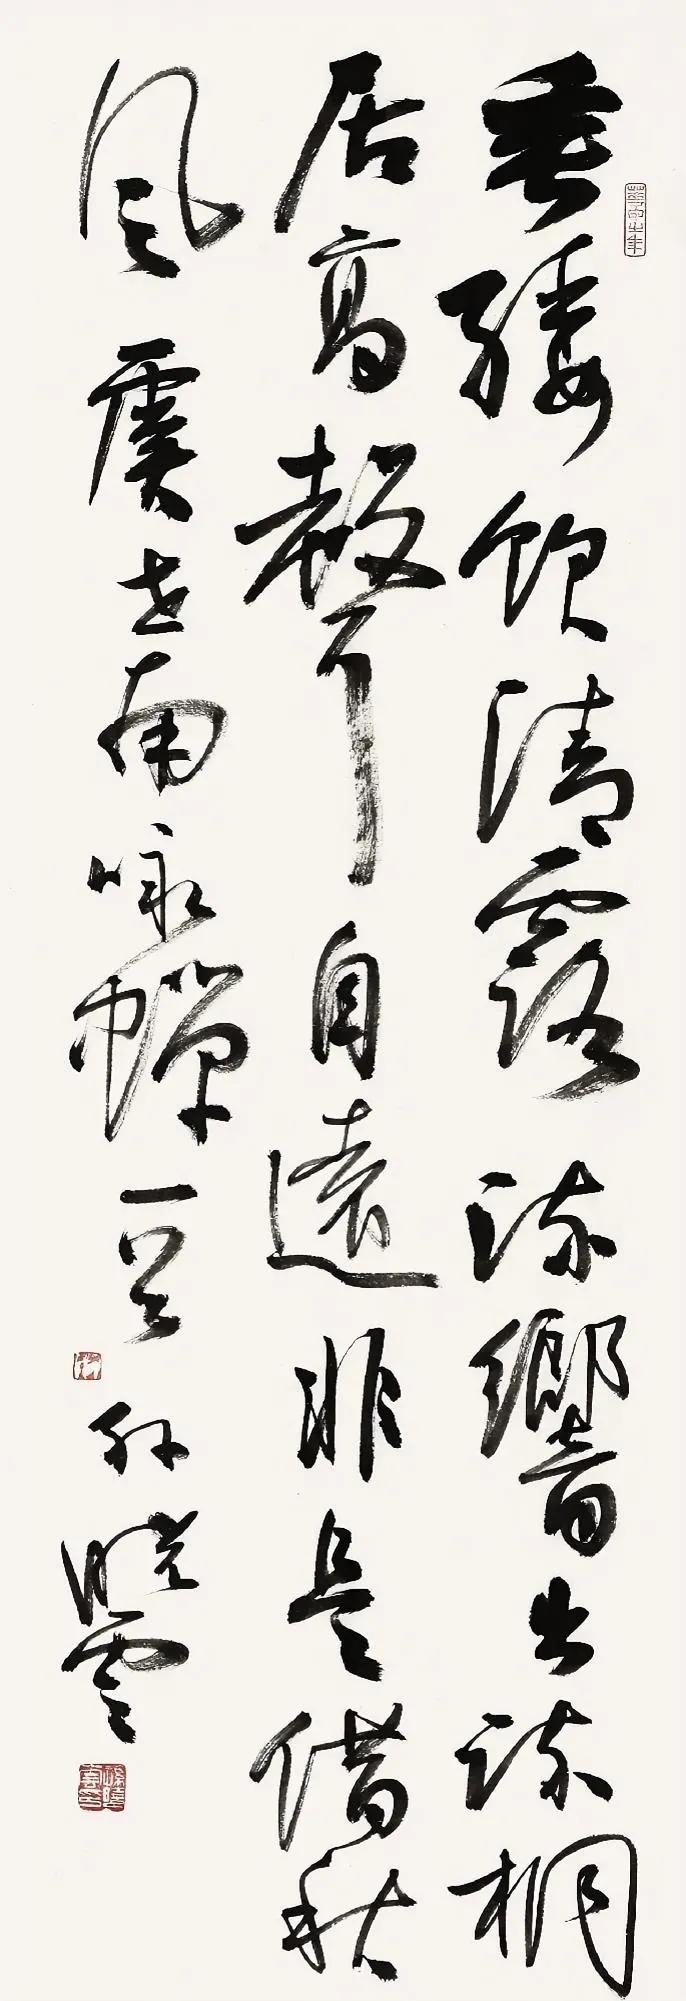 垂緌飲清露流響出疎桐
居高聲自遠非是借秋
風虞世南咏蟬一首孫曉雲